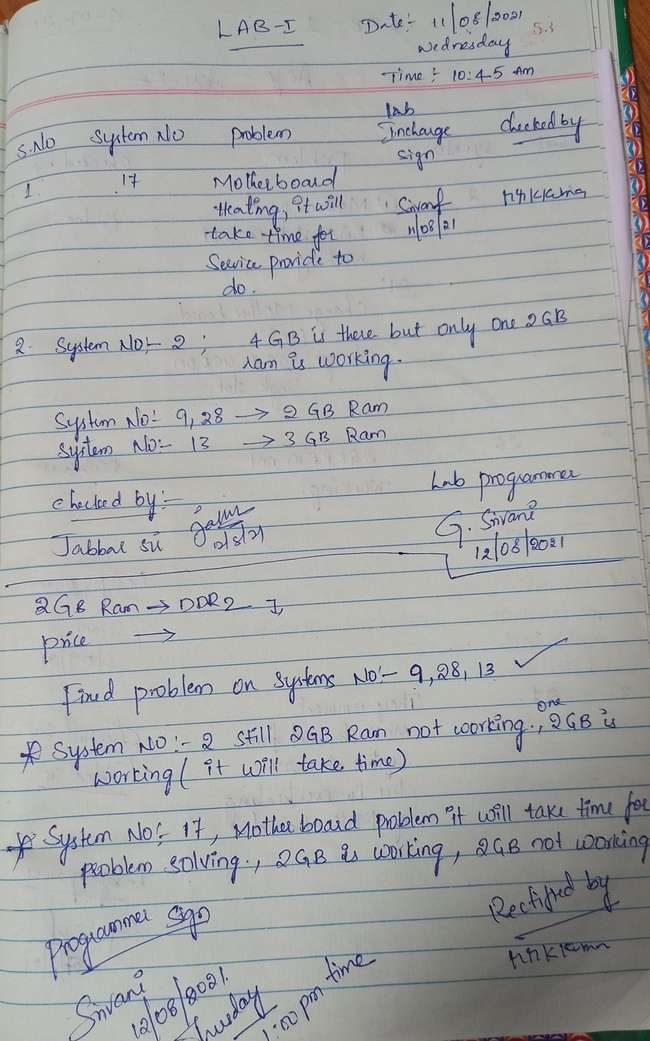 LAB-I
Date:- 11/08/2021
Wednesday
5.3
Time:- 10:45 Am
S.No System No problem lab Incharge sign checked by
1. 17 Motherboard
Heating, it will
take time for
Service provide to
do.
Srivani
11/08/21
2. System No:- 2 ; 4 GB is there but only one 2 GB
ram is working.
System No:- 9, 28 → 2 GB Ram
System No:- 13 → 3 GB Ram
checked by:-
Jabbar sir
12/8/21
Lab programmer
G. Srivani
12/08/2021
2GB Ram → DDR2
price →
Fixed problem on systems No:- 9, 28, 13 ✓
* System No:- 2 still 2GB Ram not working., one 2GB is
working ( it will take time)
* System No:- 17, Motherboard problem it will take time for
problem solving., 2GB is working, 2GB not working
Programmer sign
Srivani
12/08/2021.
1:00 pm time
Rectified by